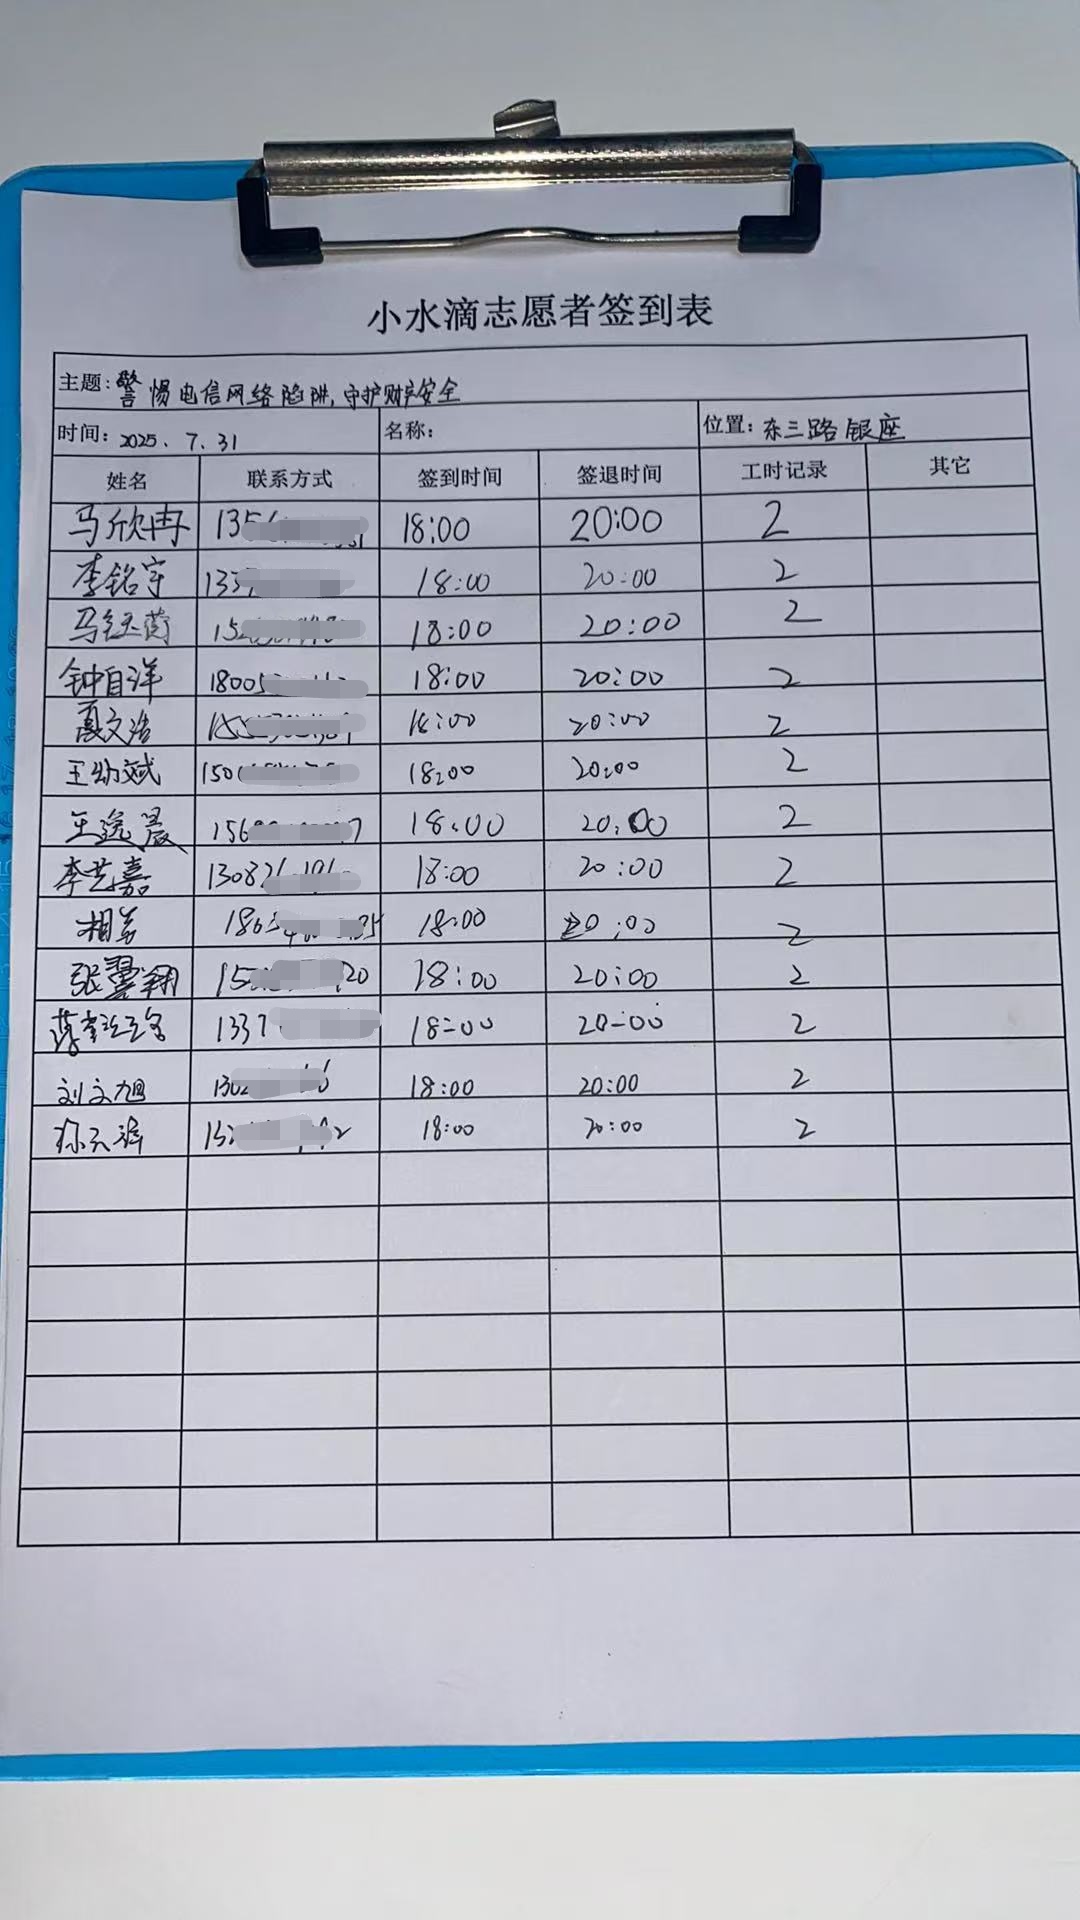 小水滴志愿者签到表
主题:警惕电信网络陷阱,守护财产安全
时间:2025.7.31 名称: 位置:东三路银座
姓名 联系方式 签到时间 签退时间 工时记录 其它
马欣冉 135 18:00 20:00 2
李铭宇 133 18:00 20:00 2
马钰茜 15 18:00 20:00 2
钟自洋 18005 18:00 20:00 2
夏文浩 18:00 20:00 2
王幼斌 150 18:00 20:00 2
王逸晨 156 7 18:00 20:00 2
李艺嘉 13082 18:00 20:00 2
相芳 186 18:00 20:00 2
张翼翔 15 20 18:00 20:00 2
1337 18=00 20=00 2
刘文旭 130 18:00 20:00 2
15 2 18:00 20:00 2